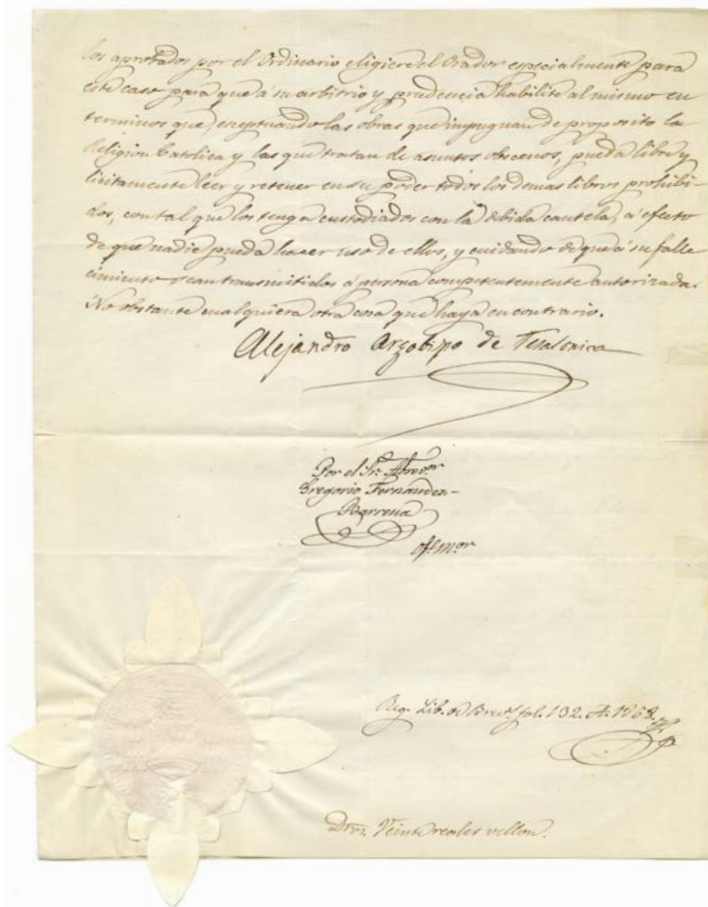 los aprobados por el Ordinario eligiere el Orador especialmente para
este caso para que á su arbitrio y prudencia habilite al mismo en
terminos que, exceptuando las obras que impugnan de proposito la
Religion Catolica y las que tratan de asuntos obcenos, pueda libre y
licitamente leer y retener en su poder todos los demas libros prohibi-
dos, con tal que los tenga custodiados con la debida cautela, á efecto
de que nadie pueda hacer uso de ellos, y cuidando de que á su falle
cimiento sean transmitidos á persona competentemente autorizada.
No obstante cualquiera otra cosa que haya en contrario.
Alejandro Arzobispo de Tesalonica
Por el Sr. Abrevor
Gregorio Fernandez-
Barrena
ofl. mor
Reg. Lib. de Brevs. fol. 132. A. 1768.
Dros. Veinte reales vellon.